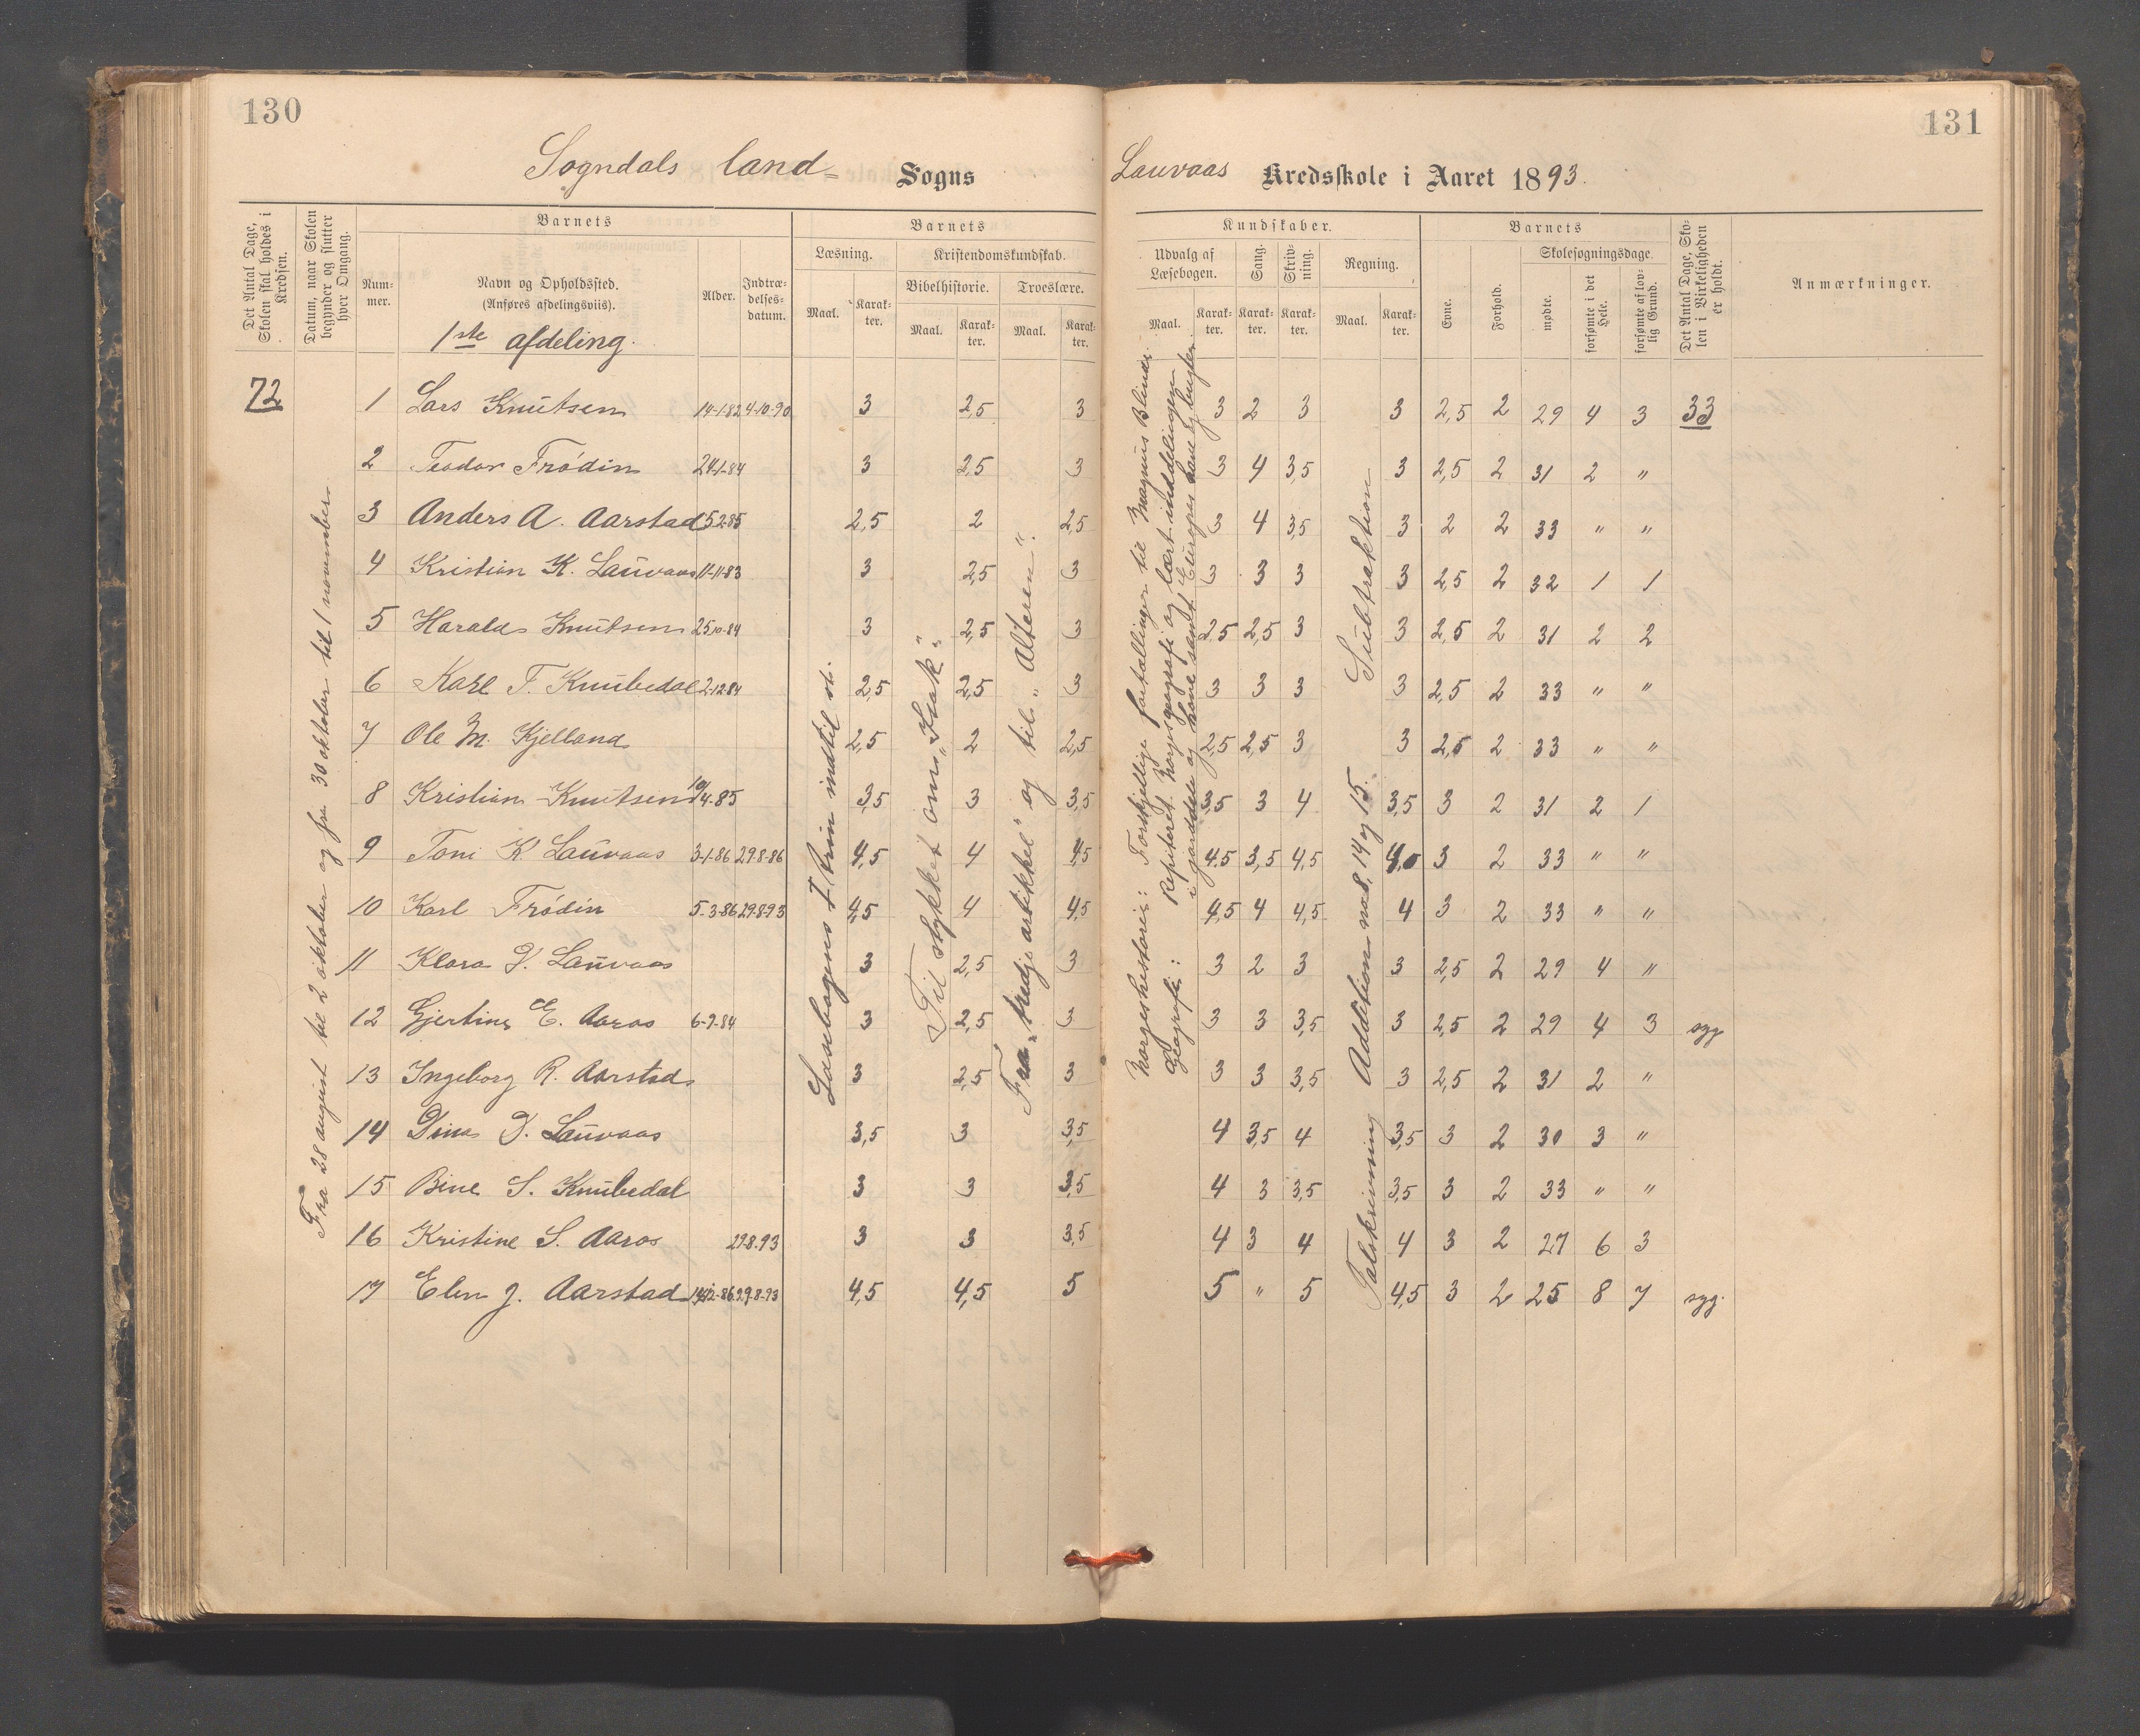 130
131
Sogndals land= Sogns
Lauvaas Kredsskole i Aaret 1893.
Det Antal Dage, Skolen skal holdes i Kredsen.
Datum, naar Skolen begynder og slutter hver Omgang.
Barnets
Nummer.
Navn og Opholdssted.
(Anføres afdelingsviis).
1ste afdeling.
Alder.
Indtrædelsesdatum.
Barnets
Læsning.
Maal.
Karakter.
Kristendomskundskab.
Bibelhistorie.
Maal.
Karakter.
Troeslære.
Maal.
Karakter.
Kundskaber.
Udvalg af Læsebogen.
Maal.
Karakter.
Sang.
Karakter.
Skrivning.
Karakter.
Regning.
Maal.
Karakter.
Barnets
Evne.
Forhold.
Skolesøgningsdage.
mødte.
forsømte i det Hele.
forsømte af lovlig Grund.
Det Antal Dage, Skolen i Virkeligheden er holdt.
Anmærkninger.
72
Fra 28 august til 2 oktober og fra 30 oktober til 1 november
Læsebogens I trin indtil st.
Til stykket om "Isak".
Fra "tredje artikkel" og til "Alteren".
Norgeshistorie: Forskjellige fortællinger til Magnus Blinde.
Geografi: Repiteret Norgesgeografi og lært inddelingen
i jorddele og have samt Europas have og bugter
Talskrivning Addition no 8, 14 og 15. Subtraktion
1 Lars Knutsen 14-1-82 4-10-90 3 2,5 3 3 2 3 3 2,5 2 29 4 3 33
2 Teodor Frödin 24-1-84 3 2,5 3 3 4 3,5 3 2,5 2 31 2 "
3 Anders A. Aarstad 5-2-85 2,5 2 2,5 3 4 3,5 3 2 2 33 " "
4 Kristian K. Lauvaas 11-11-83 3 2,5 3 3 3 3 3 2,5 2 32 1 1
5 Harald Knutsen 25-10-84 3 2,5 3 2,5 2,5 3 3 2,5 2 31 2 2
6 Karl T. Knubedal 2-12-84 2,5 2,5 3 3 3 3 3 2,5 2 33 " "
7 Ole M. Kjelland 2,5 2 2,5 2,5 2,5 3 3 2,5 2 33 " "
8 Kristian Knutsen 10/4-85 3,5 3 3,5 3,5 3 4 3,5 3 2 31 2 1
9 Toni K. Lauvaas 3-1-86 29-8-86 4,5 4 4,5 4,5 3,5 4,5 4,0 3 2 33 " "
10 Karl Frödin 5-3-86 29-8-93 4,5 4 4,5 4,5 4 4,5 4 3 2 33 " "
11 Klara J. Lauvaas 3 2,5 3 3 2 3 3 2,5 2 29 4 "
12 Gjertine E. Aaros 6-9-84 3 2,5 3 3 3 3,5 3 2,5 2 29 4 3 syg
13 Ingeborg R. Aarstad 3 2,5 3 3 3 3,5 3 2,5 2 31 2 "
14 Dina J. Lauvaas 3,5 3 3,5 4 3,5 4 3,5 3 2 30 3 "
15 Bine S. Knubedal 3 3 3,5 4 3 3,5 3,5 3 2 33 " "
16 Kristine S. Aaros 29-8-93 3 3 3,5 4 3 4 4 3 2 27 6 3
17 Elen J. Aarstad 29-8-93 4,5 4,5 5 5 " 5 4,5 3 2 25 8 7 syg.